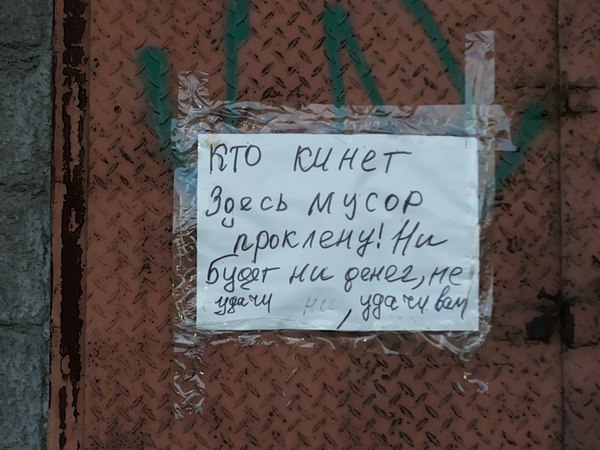 КТО КИНЕТ
Здесь МУСОР
проклену! Ни
будет ни денег, не
удачи ни, удачи вам